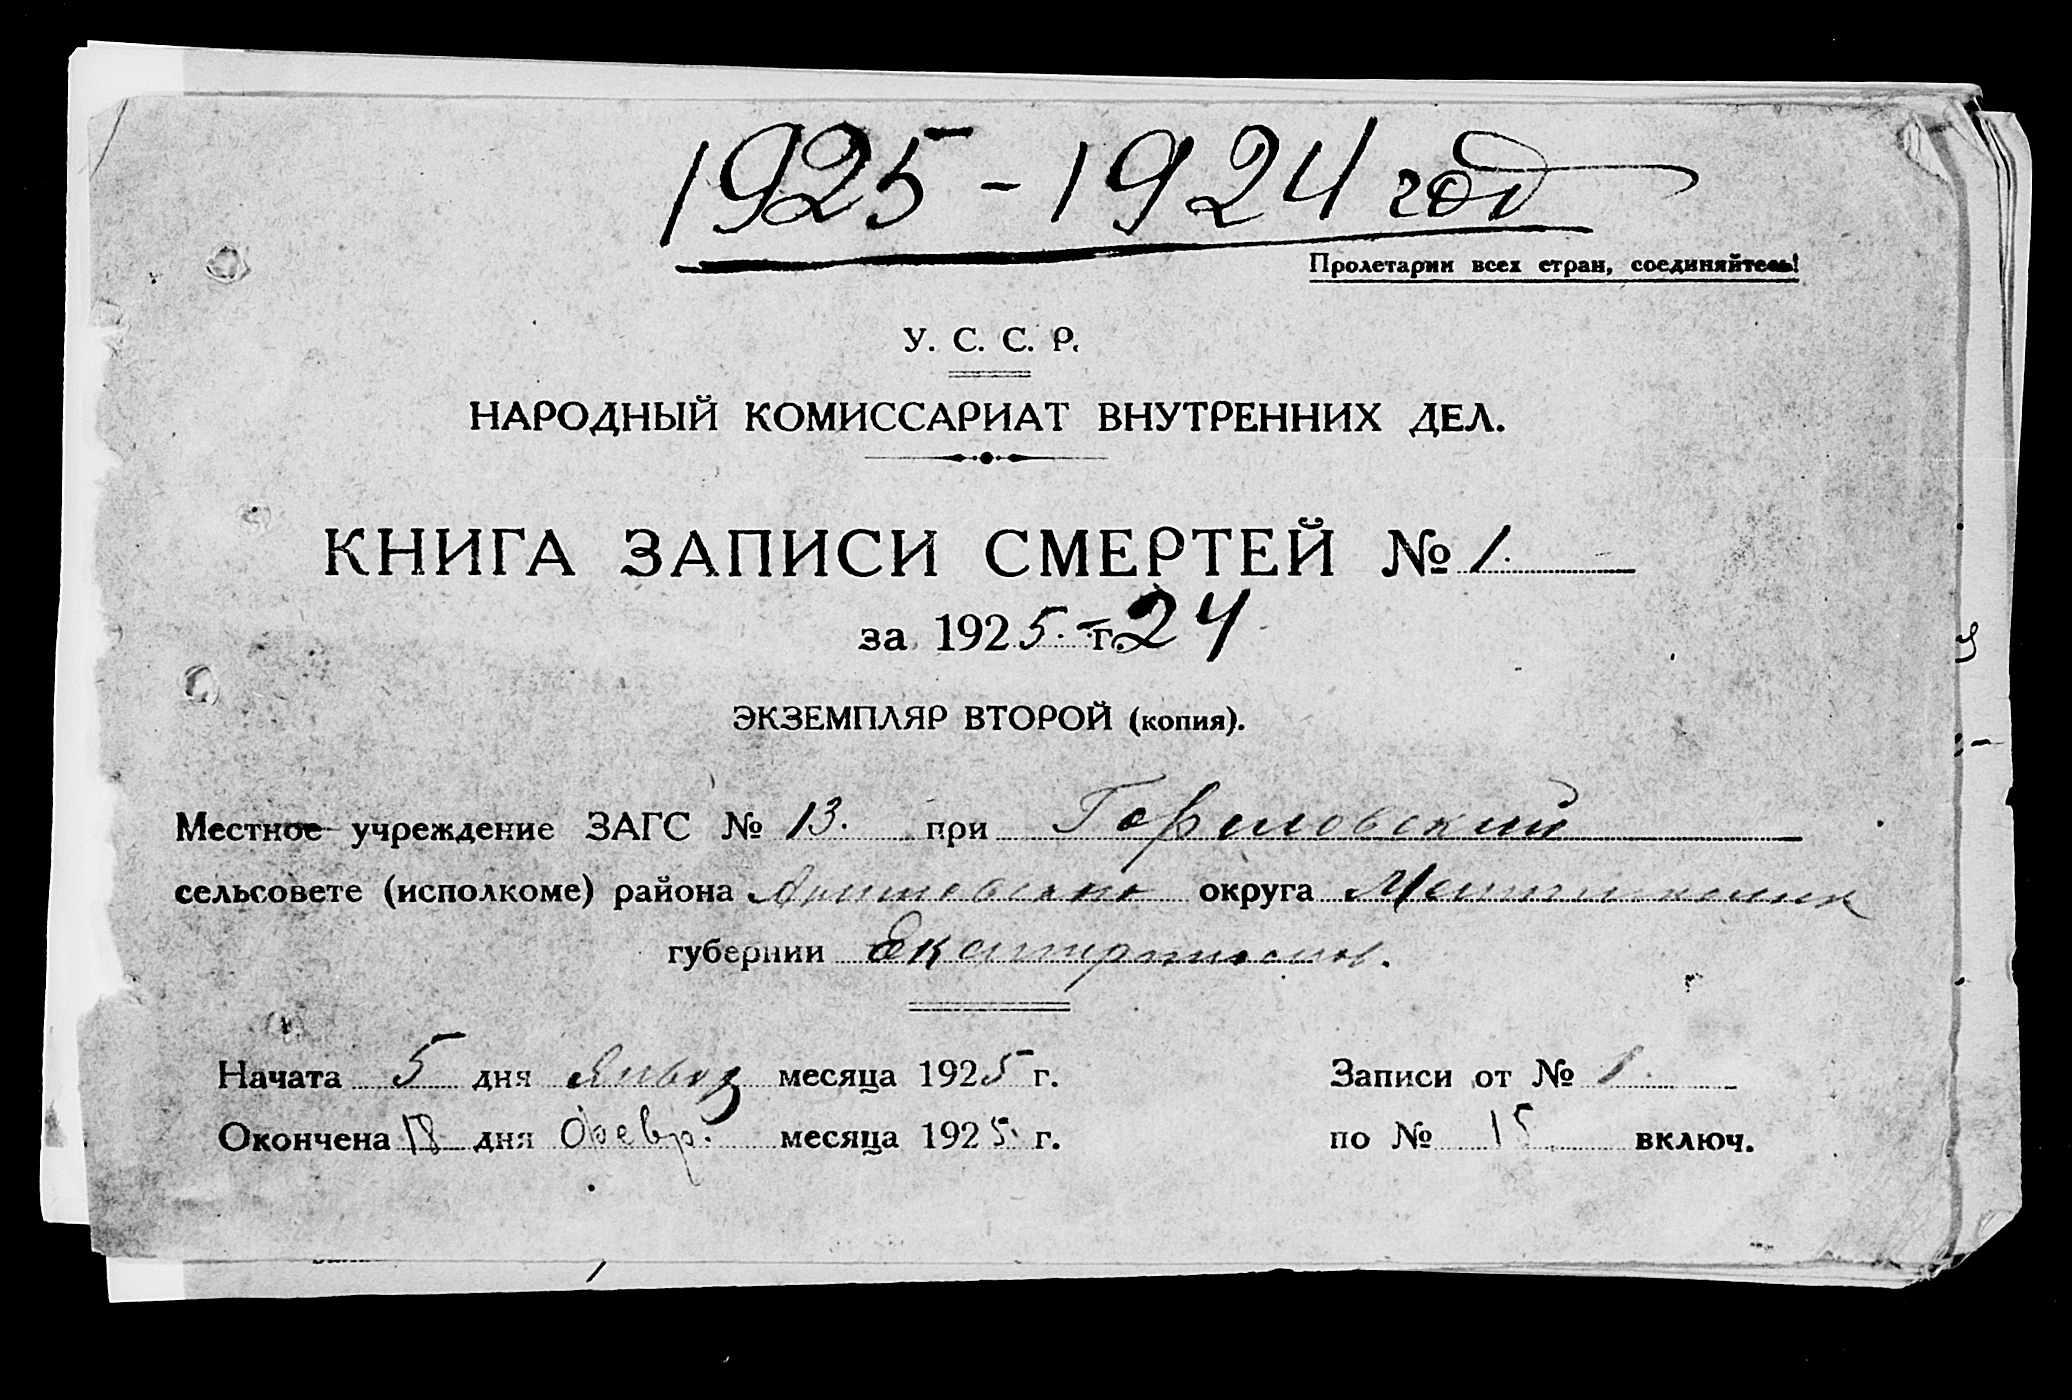 1925 - 1924 год
Пролетарии всех стран, соединяйтесь!
У. С. С. Р.
НАРОДНЫЙ КОМИССАРИАТ ВНУТРЕННИХ ДЕЛ.
КНИГА ЗАПИСИ СМЕРТЕЙ № 1.
за 1925. - г. 24
ЭКЗЕМПЛЯР ВТОРОЙ (копия).
Местное учреждение ЗАГС № 13. при
сельсовете (исполкоме) района округа
губернии
Начата 5 дня месяца 1925 г.
Записи от № 1.
Окончена 18 дня Февр. месяца 1925. г.
по № 15 включ.